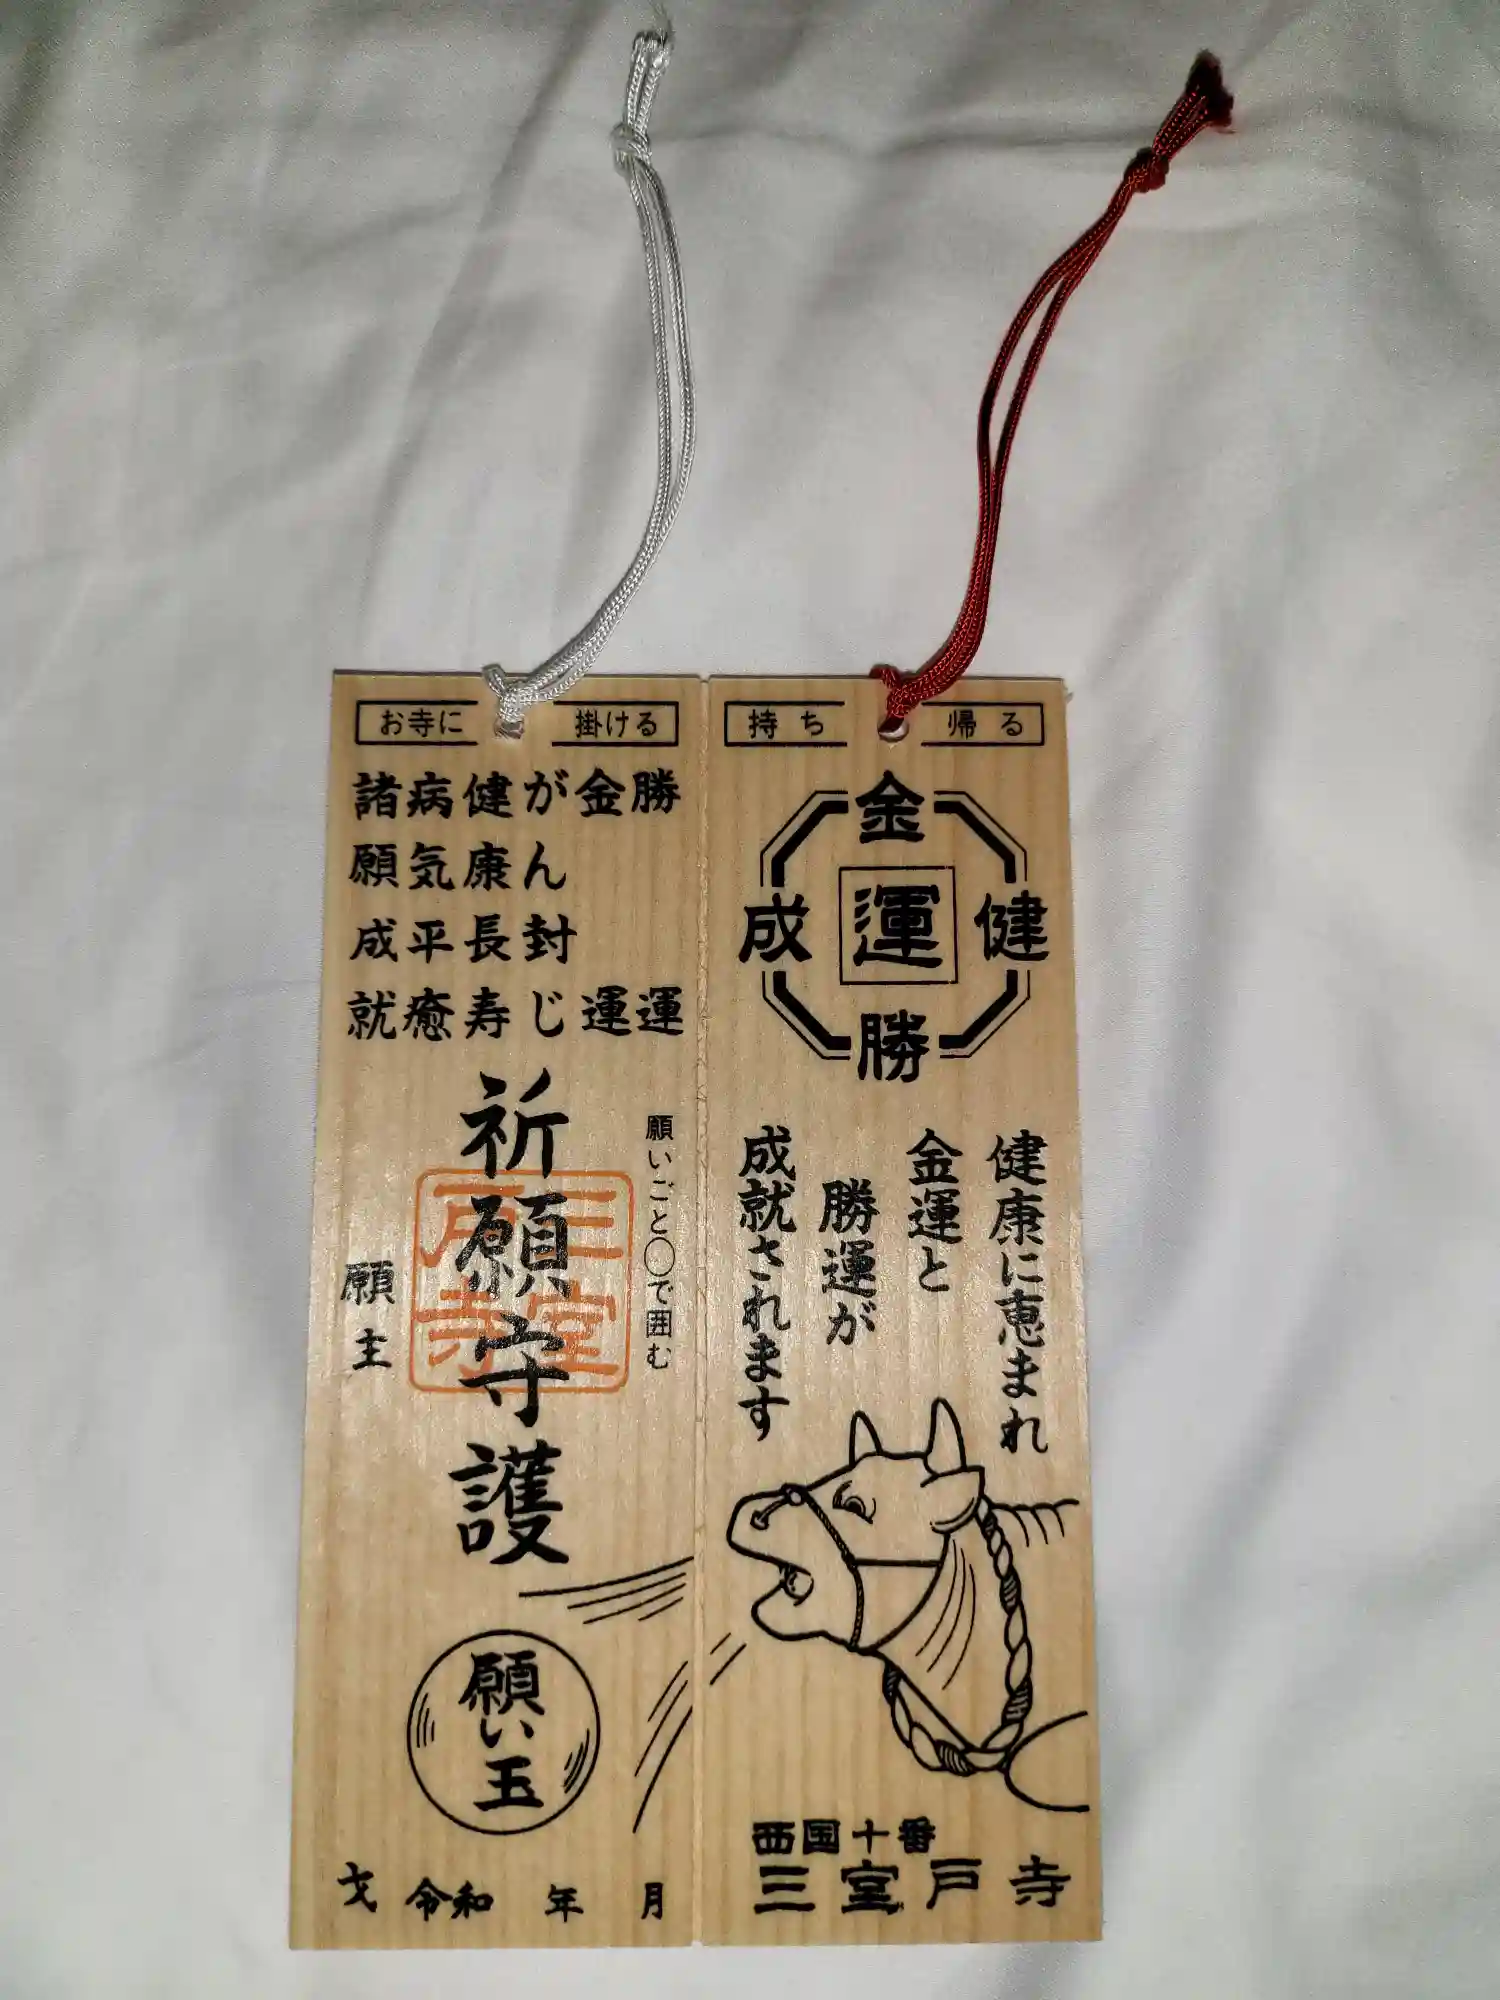 お寺に 掛ける
勝運
金運
がん封じ
健康長寿
病気平癒
諸願成就
願いごと〇で囲む
祈願守護
三室戸寺
願主
願い玉
令和 年 月
持ち 帰る
金
成 運 健
勝
健康に恵まれ
金運と
勝運が
成就されます
西国十番
三室戸寺